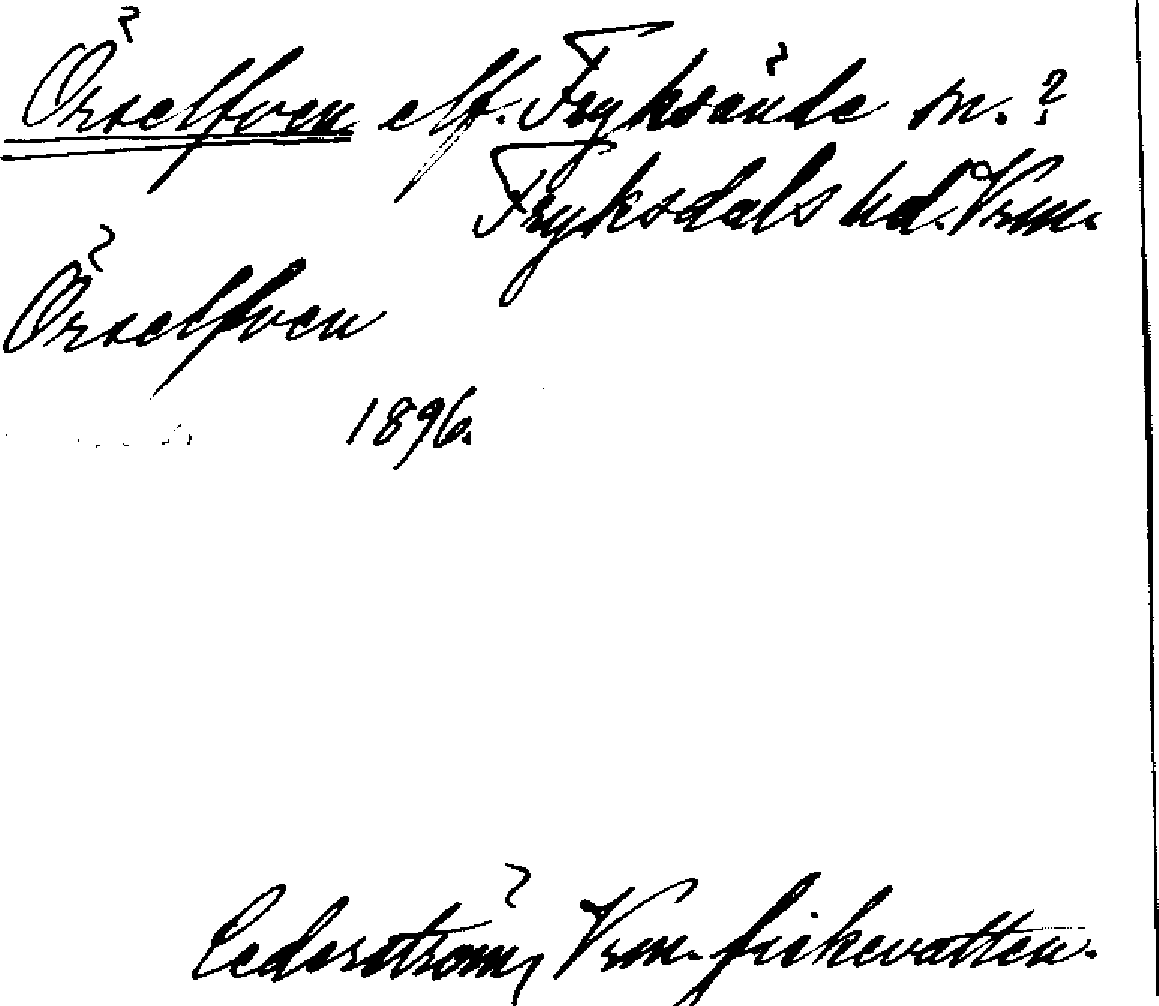 Örselfven elf. Fryksände sn.?
Fryksdals hd. Vrm.
Örselfven
1896.
Cederström, Vrm. fiskevatten.